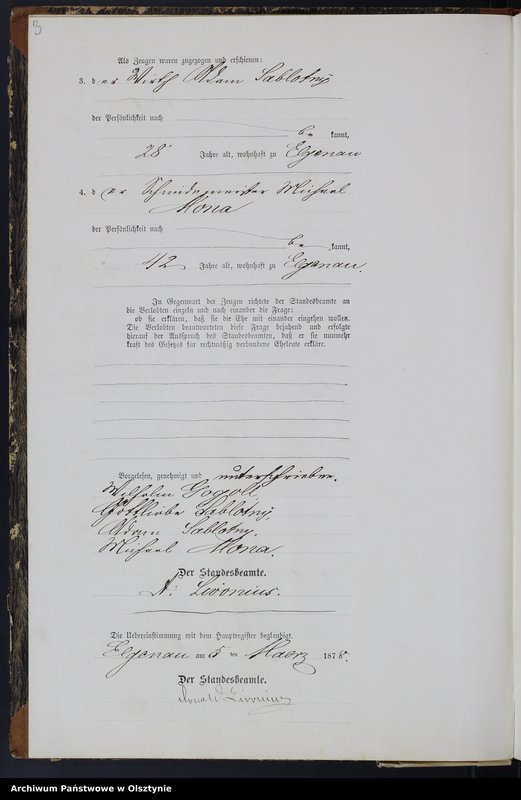 3
Als Zeugen waren zugezogen und erschienen:
3. der Wirth Adam Sablotny
der Persönlichkeit nach
be kannt,
28 Jahre alt, wohnhaft zu Elgenau
4. der Schmidemeister Michael
Mona
der Persönlichkeit nach
be kannt,
42 Jahre alt, wohnhaft zu Elgenau.
In Gegenwart der Zeugen richtete der Standesbeamte an
die Verlobten einzeln und nach einander die Frage:
ob sie erklären, daß sie die Ehe mit einander eingehen wollen.
Die Verlobten beantworteten diese Frage bejahend und erfolgte
hierauf der Ausspruch des Standesbeamten, daß er sie nunmehr
kraft des Gesetzes für rechtmäßig verbundene Eheleute erkläre.
Vorgelesen, genehmigt und unterschrieben.
Wilhelm Gogoll
Gottliebe Sablotny.
Adam Sablotny.
Michael Mona.
Der Standesbeamte.
A: Livonius.
Die Uebereinstimmung mit dem Hauptregister beglaubigt.
Elgenau am 5 ten Maerz 1878.
Der Standesbeamte.
Livonius
Archiwum Państwowe w Olsztynie